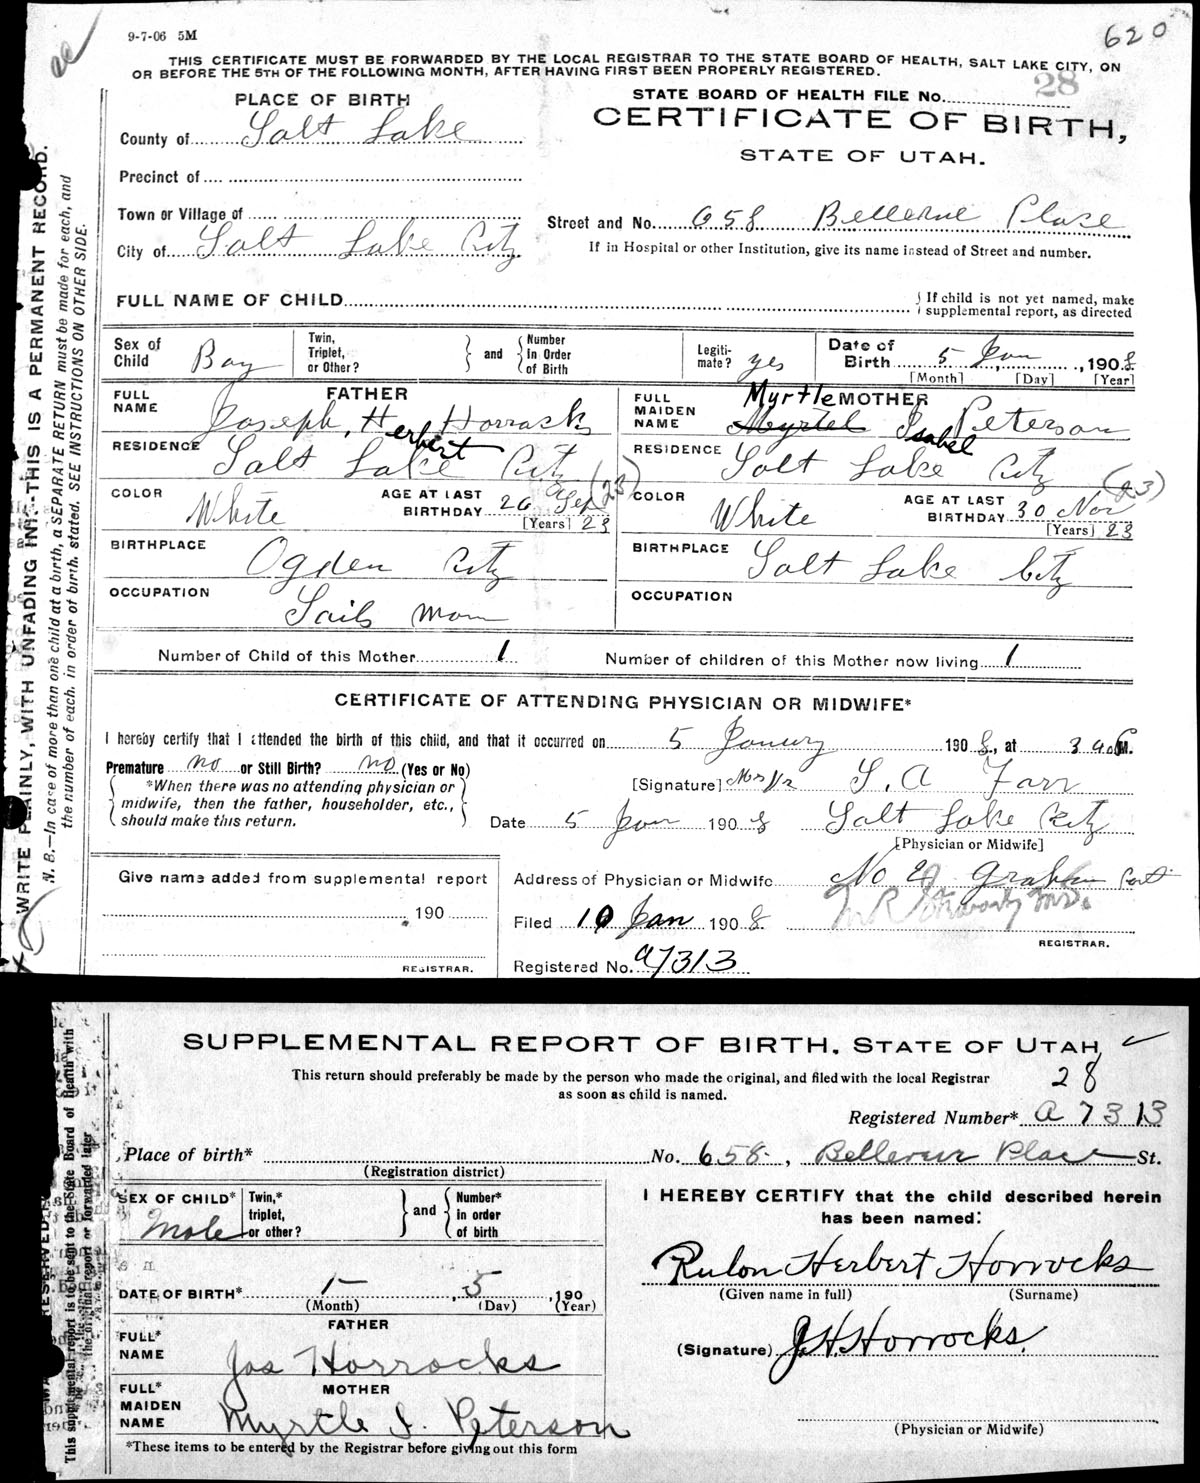 9-7-06 5M
620
THIS CERTIFICATE MUST BE FORWARDED BY THE LOCAL REGISTRAR TO THE STATE BOARD OF HEALTH, SALT LAKE CITY, ON
OR BEFORE THE 5TH OF THE FOLLOWING MONTH, AFTER HAVING FIRST BEEN PROPERLY REGISTERED.
WRITE PLAINLY, WITH UNFADING INK--THIS IS A PERMANENT RECORD.
N. B.—In case of more than one child at a birth, a SEPARATE RETURN must be made for each, and
the number of each, in order of birth, stated. SEE INSTRUCTIONS ON OTHER SIDE.
PLACE OF BIRTH
STATE BOARD OF HEALTH FILE No. 28
CERTIFICATE OF BIRTH,
STATE OF UTAH.
County of Salt Lake
Precinct of
Town or Village of
City of Salt Lake City
Street and No. 658 Bellevue Place
If in Hospital or other Institution, give its name instead of Street and number.
FULL NAME OF CHILD
If child is not yet named, make
supplemental report, as directed
Sex of Child Boy
Twin, Triplet, or Other?
and
Number in Order of Birth
Legiti-mate? yes
Date of Birth 5 Jan, 1908
[Month] [Day] [Year]
FATHER
FULL NAME Joseph, Herbert Horrocks
MOTHER
FULL MAIDEN NAME Myrtle Myrtel Isabel Peterson
RESIDENCE Salt Lake City
RESIDENCE Salt Lake City
COLOR White
AGE AT LAST BIRTHDAY 26 Sep (23)
[Years] 23
COLOR White
AGE AT LAST BIRTHDAY 30 Nov (23)
[Years] 23
BIRTHPLACE Ogden City
BIRTHPLACE Salt Lake City
OCCUPATION Sails man
OCCUPATION
Number of Child of this Mother 1
Number of children of this Mother now living 1
CERTIFICATE OF ATTENDING PHYSICIAN OR MIDWIFE*
I hereby certify that I attended the birth of this child, and that it occurred on 5 Jonury 1908, at 3 M.
Premature no or Still Birth? no (Yes or No)
*When there was no attending physician or
midwife, then the father, householder, etc.,
should make this return.
[Signature] S. A Farr
Date 5 Jan 1908 Salt Lake City
[Physician or Midwife]
Give name added from supplemental report
190
REGISTRAR.
Address of Physician or Midwife No 2
Filed 10 Jan 1908
REGISTRAR.
Registered No. a7313
SUPPLEMENTAL REPORT OF BIRTH, STATE OF UTAH
This return should preferably be made by the person who made the original, and filed with the local Registrar
as soon as child is named.
28
Registered Number* a 7313
This supplemental report is to be sent to the State Board of Health with
the original report or forwarded later
Place of birth* No. 658, Bellevue Place St.
(Registration district)
SEX OF CHILD* Male
Twin,* triplet, or other?
and
Number* in order of birth
I HEREBY CERTIFY that the child described herein
has been named:
Rulon Herbert Horrocks
(Given name in full) (Surname)
DATE OF BIRTH* 1 - 5, 190
(Month) (Day) (Year)
FATHER
FULL* NAME Jos Horrocks
(Signature) J.H. Horrocks.
MOTHER
FULL* MAIDEN NAME Myrtle I. Peterson
(Physician or Midwife)
*These items to be entered by the Registrar before giving out this form